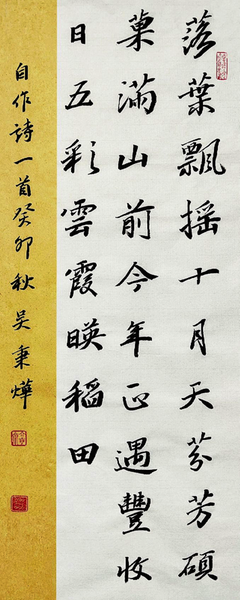 落葉飄摇十月天芬芳碩
菓滿山前今年正遇豐收
日五彩雲霞暎稻田
自作詩一首癸卯秋吴秉燁